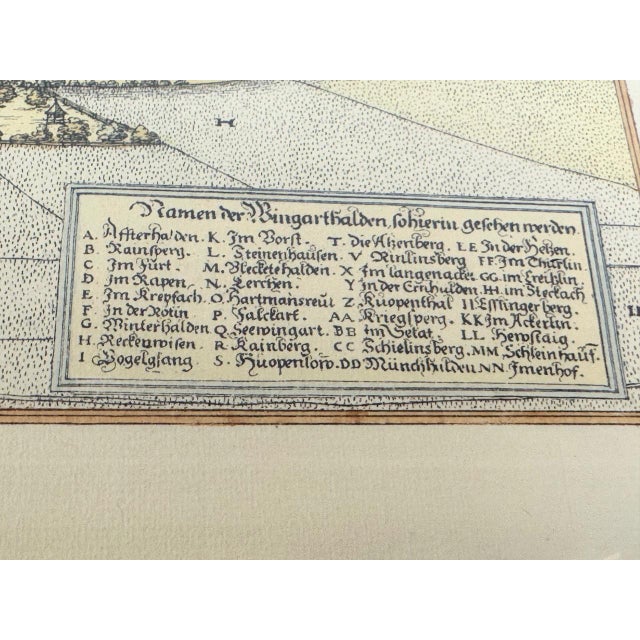 H
Namen der Wingarthalden, so hierin gesehen werden
A. Afterhalden. K. Im Vorst. T. Die Atzenberg. EE In der Hetzen.
B. Rainsperg. L. Steinenhausen. V Rinlinsberg FF im Thürlin
C Im Fürt. M. Blecketehalden. X Im langenacker GG im Creützlin
D. Im Rapen. N. Lerchen. Y In der Ernhulden HH im Steckach
E Im Krepfach. O. Hartmansreüt Z. Kuopenthal II Esslingerberg.
F In der Rotin P. Falckart. AA Kriegsperg. KK Im Ackerlin.
G. Winterhalden Q. Seewingart. BB im Setat. LL Hewstaig
H. Reckenwisen. R Kainberg. CC Schielinsberg. MM Schleinhauss.
I Vogelgsang S. Huopenlow. DD Münchhulden NN Imenhof.